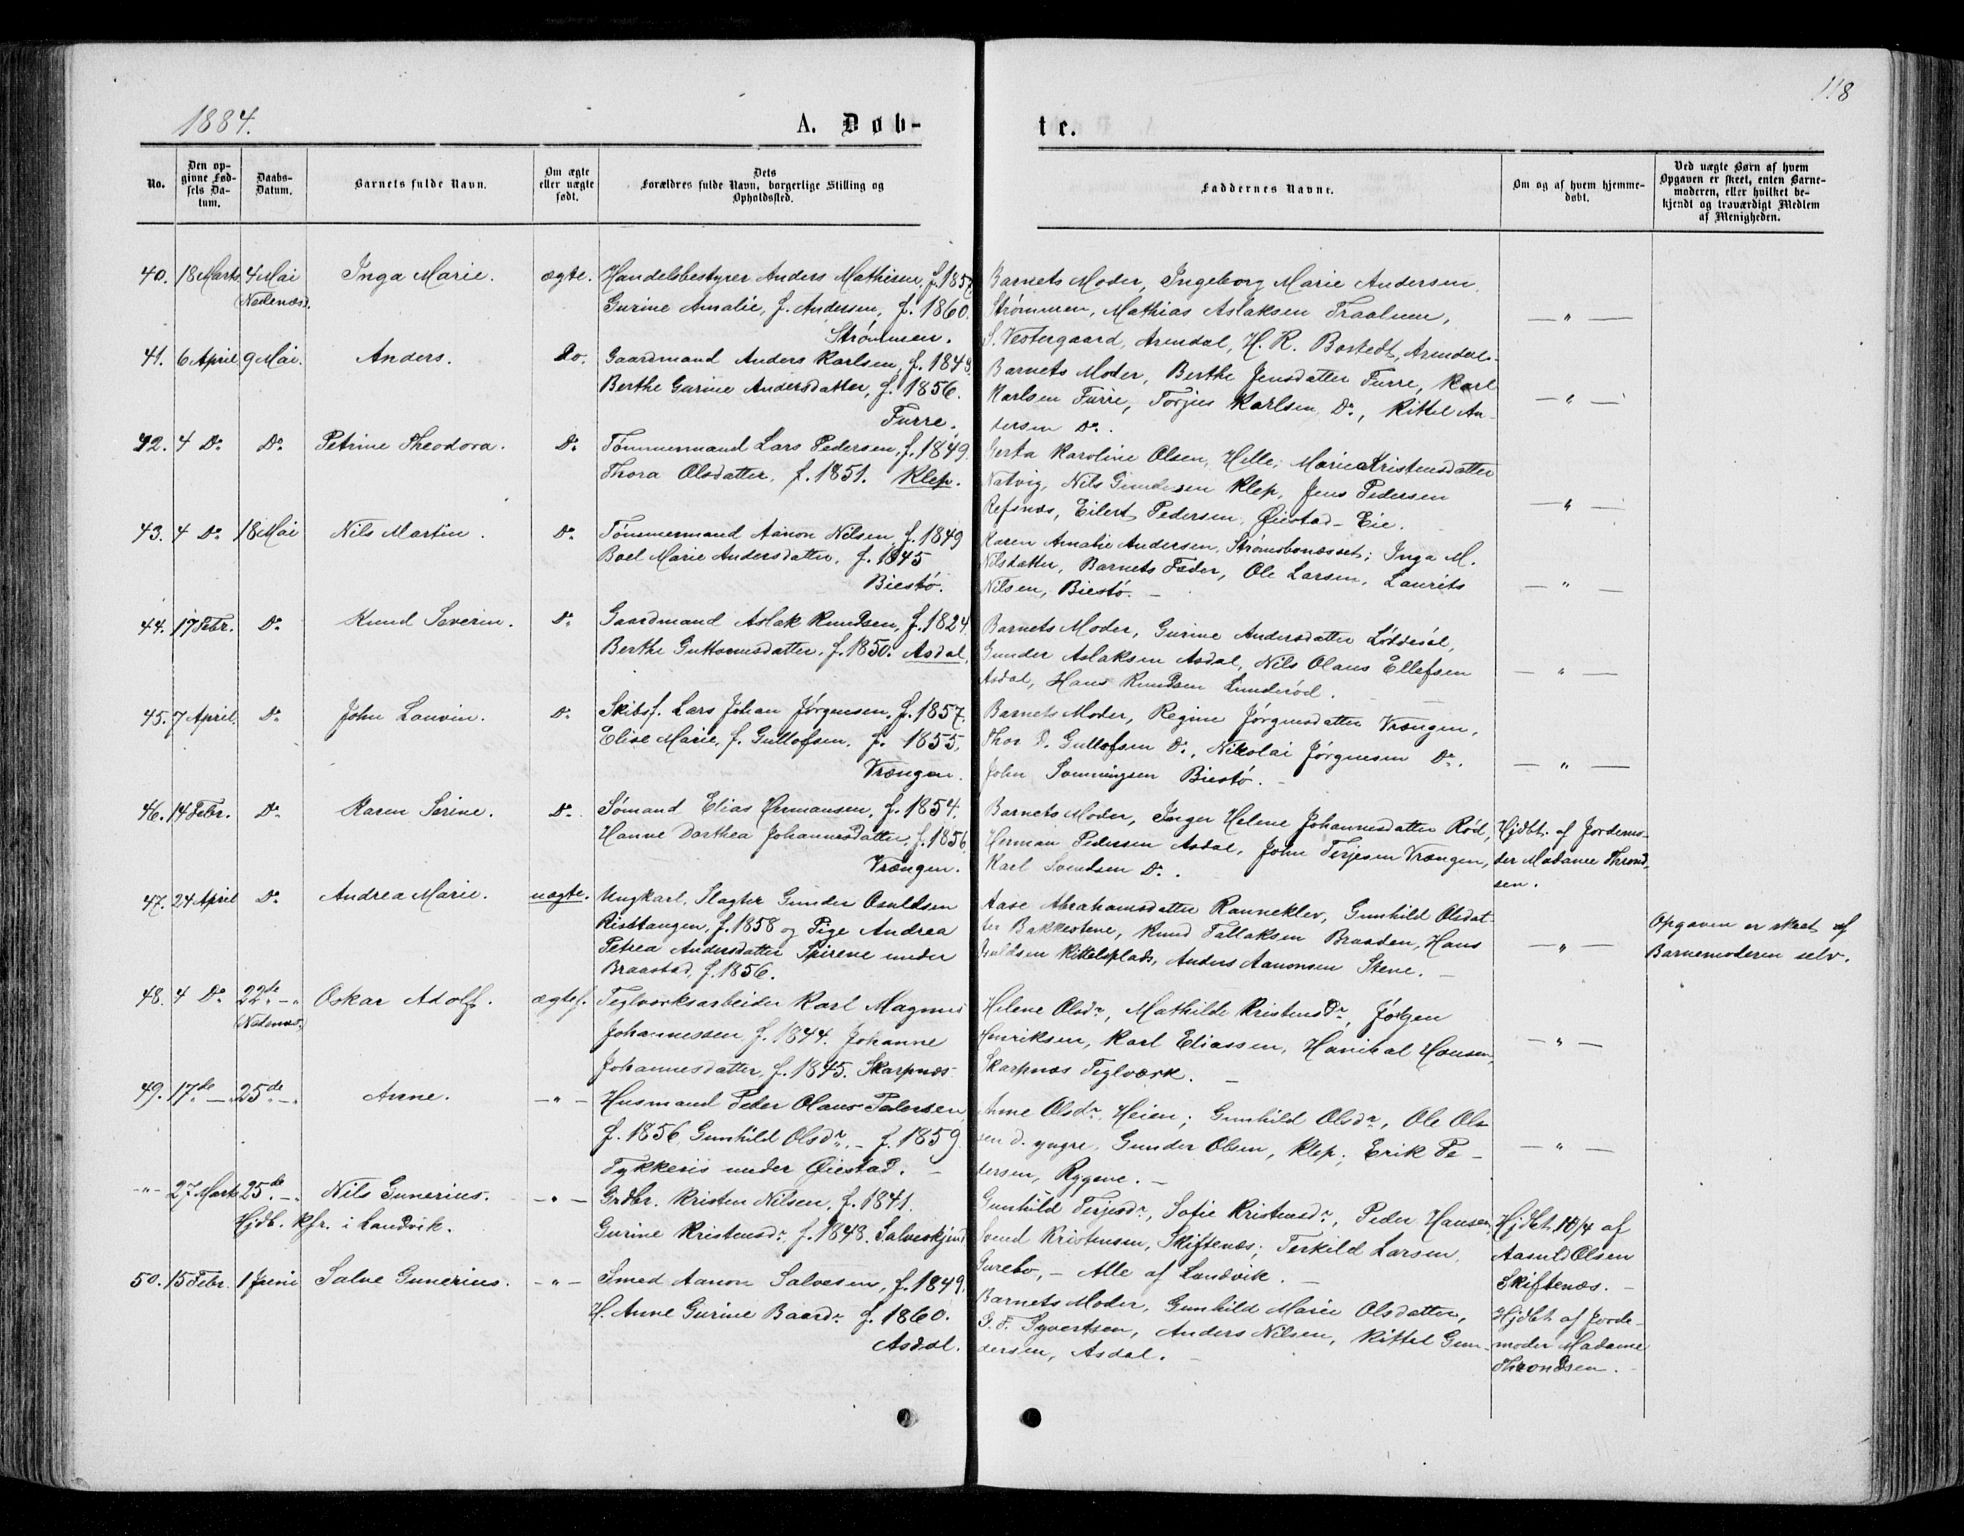 118
1884.
A. Døb-
te.
No.
Den op-
givne Fød-
sels Da-
tum.
Daabs-
Datum.
Barnets fulde Navn.
Om ægte
eller uægte
født.
Dets
Forældres fulde Navn, borgerlige Stilling og
Opholdssted.
Faddernes Navne.
Om og af hvem hjemme-
døbt.
Ved uægte Børn af hvem
Opgaven er skeet, enten Barne-
moderen, eller hvilket be-
kjendt og troværdigt Medlem
af Menigheden.
40. 18 Marts 4 Mai Inga Marie. ægte. Handelsbestyrer Anders Mathisen, f. 1857
(Nedenæs). Gurine Amalie, f. Andersen, f. 1860.
Strømmen.
Barnets Moder, Ingeborg Marie Andersen
Strømmen, Mathias Aslaksen Traalum,
S. Vestergaard, Arendal, H. R. Borstedt, Arendal.
— " —
41. 6 April 9 Mai. Anders. Do. Gaardmand Anders Karlsen, f. 1848.
Berthe Gurine Andersdatter, f. 1856.
Furre.
Barnets Moder, Berthe Jensdatter Furre, Karl
Karlsen Furre, Torjus Karlsen Do., Kittel An-
dersen Do.
— " —
42. 4 Do Do. Petrine Theodora. Do Tømmermand Lars Pedersen, f. 1849.
Thora Olsdatter, f. 1851. Klep.
Berta Karoline Olsen, Helle; Marie Kristensdatter
Natvig, Nils Gundersen Klep, Jens Pedersen
Refsnæs, Eilert Pedersen, Øiestad-Eie.
— " —
43. 4 Do 18 Mai Nils Martin. Do. Tømmermand Aanon Nilsen, f. 1849
Boel Marie Andersdatter, f. 1845
Biestø.
Karen Amalie Andersen, Strømsbonæsset; Inga M.
Nilsdatter, Barnets Fader, Ole Larsen, Laurits
Nilsen, Biestø. —
— " —
44. 17 Febr. Do. Knud Severin. Do. Gaardmand Aslak Knudsen, f. 1824.
Berthe Guttormsdatter, f. 1850. Asdal.
Barnets Moder, Gurine Andersdatter Løddesøl,
Gunder Aslaksen Asdal, Nils Olaus Ellefsen
Asdal, Hans Knudsen Lunderød.
— " —
45. 7 April. Do. John Lauvin. Do. Skibsf. Lars Johan Jørgensen, f. 1857.
Elise Marie, f. Gullofsen, f. 1855.
Vrængen.
Barnets Moder, Regine Jørgensdatter Vrængen,
Thor P. Gullofsen Do., Nikolai Jørgensen Do.
John Sonningsen Biestø.
— " —
46. 14 Febr. Do. Karen Serine. Do. Sømand Elias Hermansen, f. 1854.
Hanne Dorthea Johannesdatter, f. 1856
Vrængen.
Barnets Moder, Inger Helene Johannesdatter Rød,
Herman Pedersen Asdal, John Terjesen Vrængen,
Karl Svendsen Do.
Hjdbt. af Jordemo-
der Madame Thrond-
sen.
47. 24 April Do. Andrea Marie. uægte. Ungkarl, Slagter Gunder Osuldsen
Ristangen, f. 1858 og Pige Andrea
Petrea Andersdatter Spirene under
Braastad, f. 1856.
Aase Abrahamsdatter Ranneklev, Gunhild Olsdat-
ter Bakkestene, Knud Tallaksen Braaden, Hans
Guldsen Kittelsplads, Anders Aanonsen Stene. —
— " —
Opgaven er skeet af
Barnemoderen selv.
48. 4 Do 22de - " - Oskar Adolf. ægtef. Teglværksarbeider Karl Magnus
(Nedenæs) Johannessen f. 1844. Johanne
Johannesdatter, f. 1845. Skarpnæs
Helene Olsdr, Mathilde Kristensdr, Jørgen
Henriksen, Karl Eliassen, Hanibal Hansen,
Skarpnæs Teglværk. —
— " —
49. 17de - 25de - " - Anne. - " - Husmand Peder Olaus Pedersen
f. 1856. Gunhild Olsdr. - f. 1859.
Tykkeris under Øiestad. —
Anne Olsdr Heien; Gunhild Olsdr, Ole Ol-
sen d. yngre, Gunder Olsen, Klep; Erik Pe-
dersen, Ryggene. —
— " —
- " - 27 Marts 25de - " - Nils Gunerius. - " - Grdbr. Kristen Nilsen, f. 1841.
Hjdb. Kfr. i Landvik. Gurine Kristensdr f. 1848. Salveskjend
Gunhild Terjesdr, Sofie Kristensdr, Peder Hansen,
Svend Kristensen, Skiftenæs; Terkild Larsen
Gurebo, - Alle af Landvik. —
Hjdbt. 10/4 af
Aasul Olsen
Skiftenæs. —
50. 15 Febr. 1 Juni Salve Gunerius. - " - Smed Aanon Salvesen, f. 1849.
H. Anne Gurine Baardr f. 1860.
Asdal.
Barnets Moder, Gunhild Marie Olsdatter,
Syvertsen, Anders Nilsen, Kittel Gun-
dersen, Asdal. —
Hjdbt. af Jorde-
moder Madame
Throndsen. —